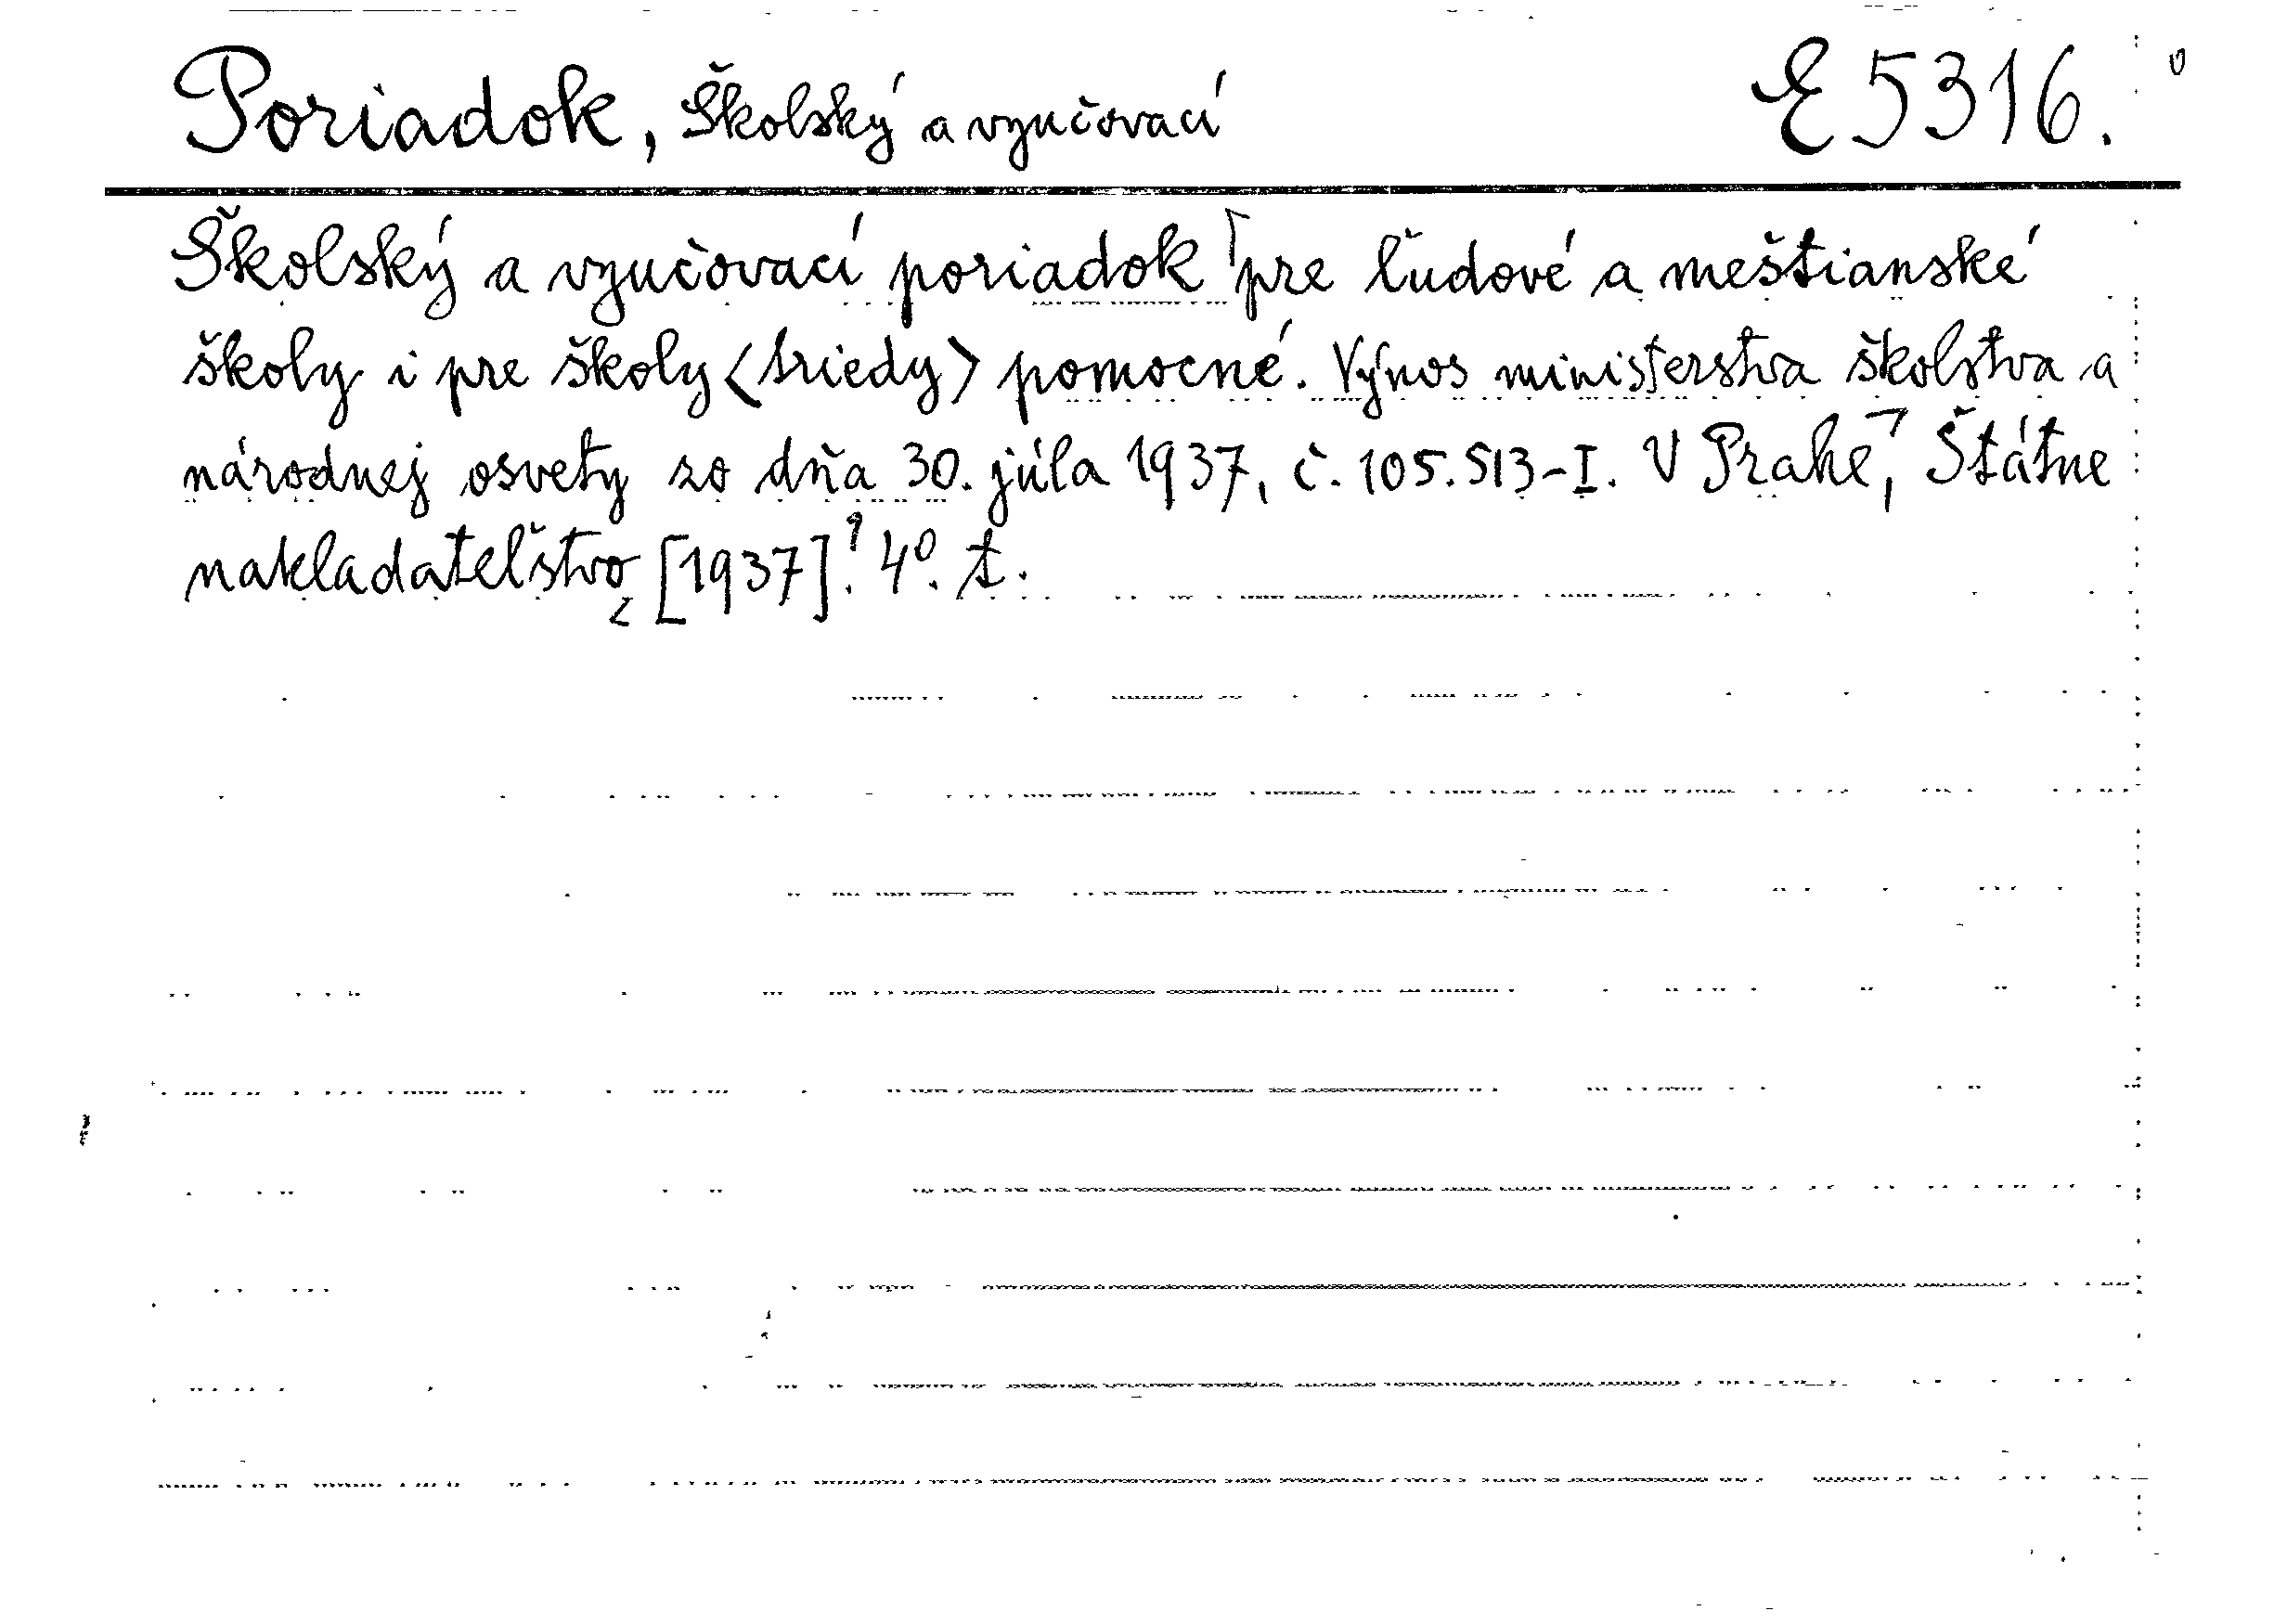 Poriadok, Školský a vyučovací E 5316.
Školský a vyučovací poriadok pre ľudové a meštianské
školy i pre školy <triedy> pomocné. Výnos ministerstva školstva a
národnej osvety zo dňa 30. júla 1937, č. 105.513-I. V Prahe, Štátne
nakladateľstvo [1937]. 4°. t.